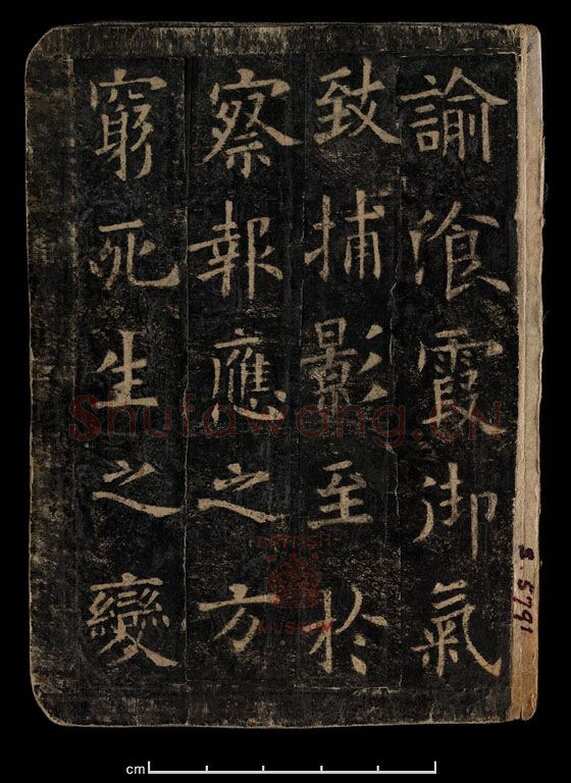 諭飡霞御氣
致捕影至於
察報應之方
窮死生之變
Shufawang.cn
S.5791
cm